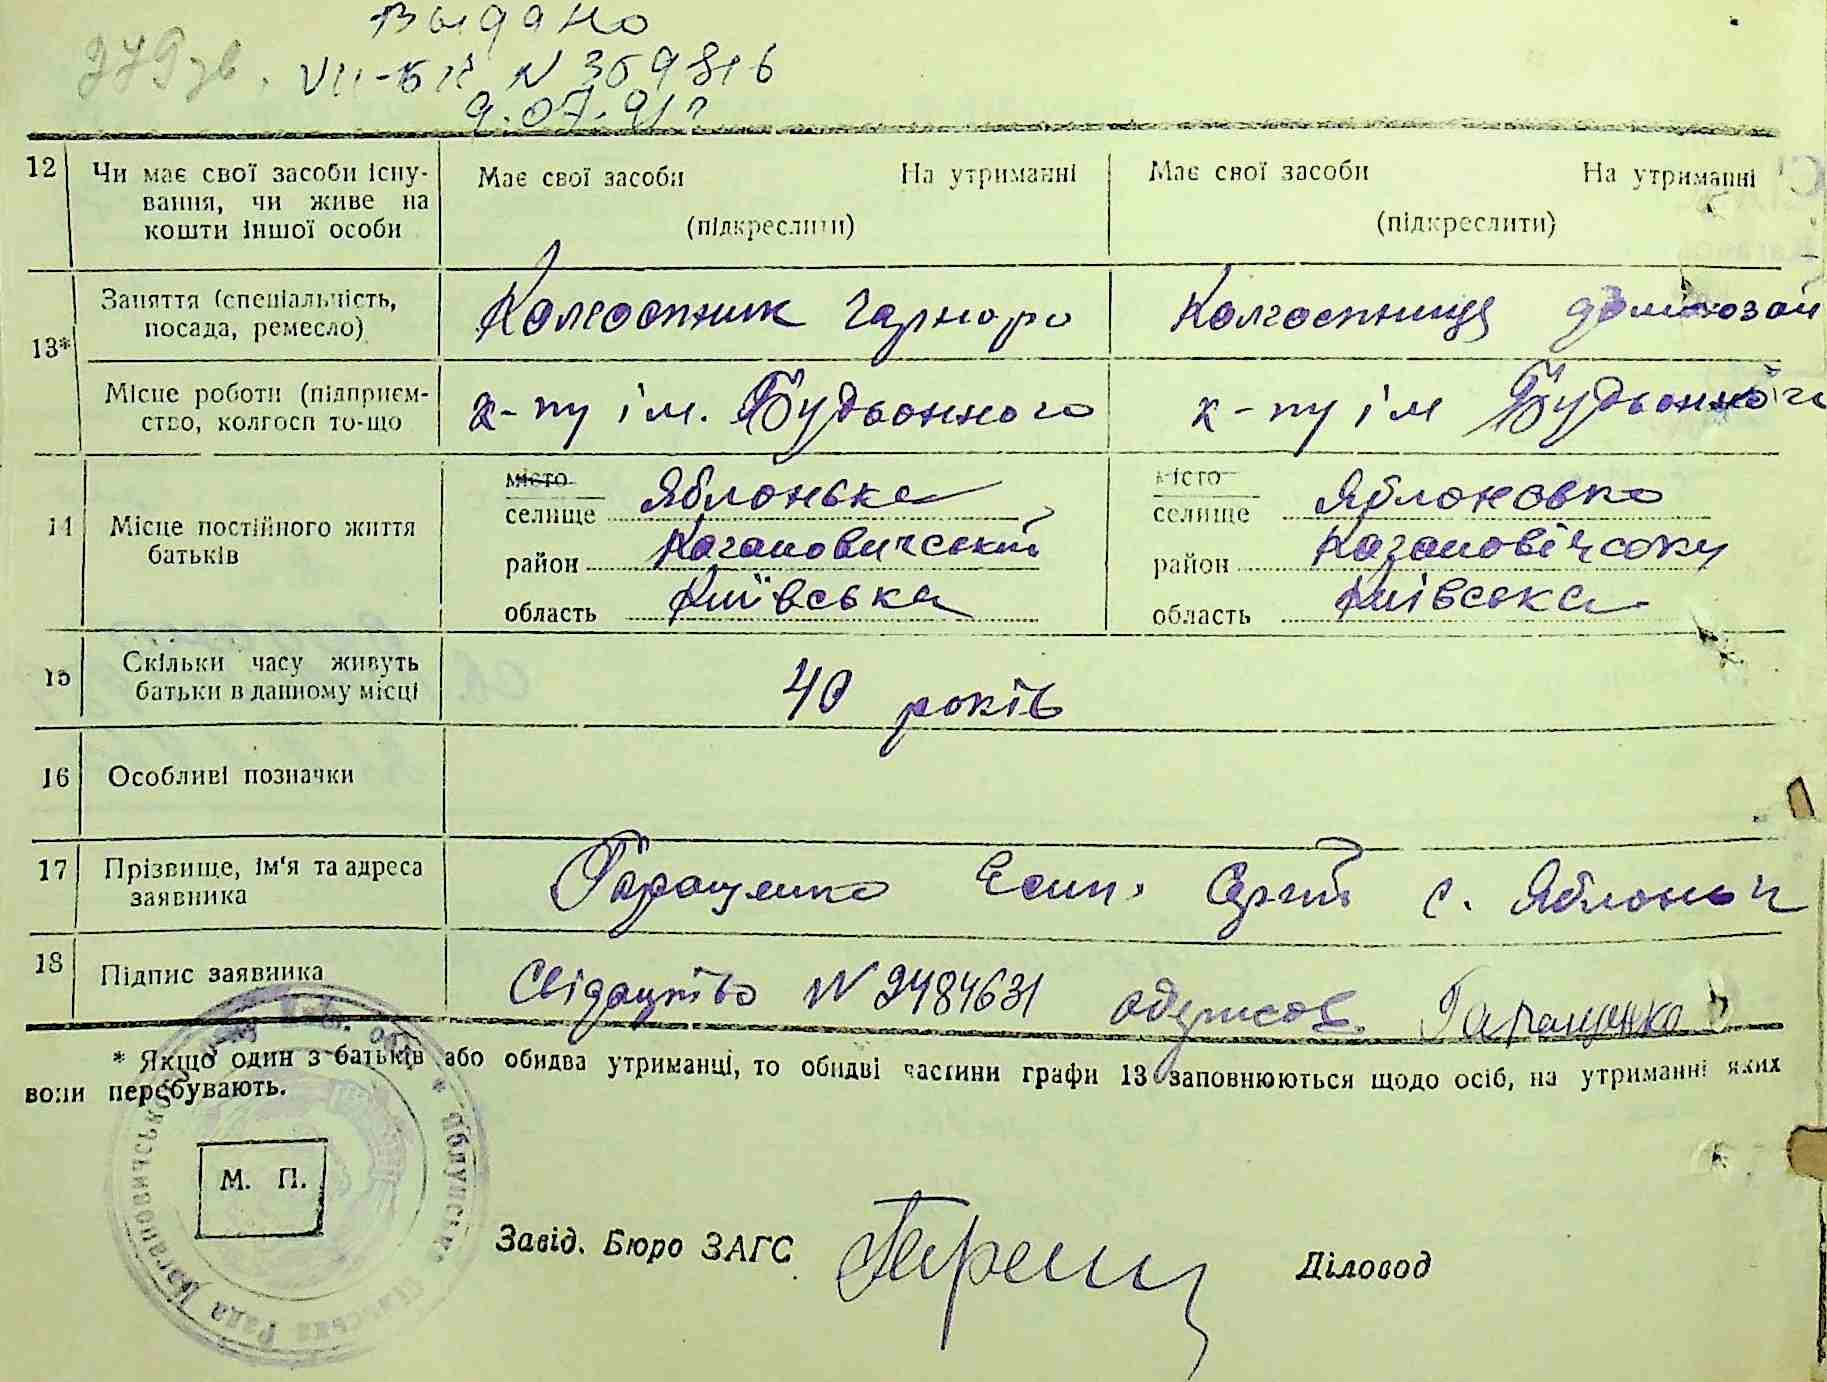 Выдано
VII-БК N 369816
9.07.91г
12 Чи має свої засоби існу-
вання, чи живе на
кошти іншої особи
Має свої засоби На утриманні
(підкреслити)
Має свої засоби На утриманні
(підкреслити)
13*
Заняття (спеціальність,
посада, ремесло)
Колгоспник
Колгоспниця
Місце роботи (підприєм-
ство, колгосп то-що
к-пу ім. Будьонного
к-пу ім Будьонного
14 Місце постійного життя
батьків
місто
селище Яблонька
район Кагановичський
область Київська
місто
селище Яблоновка
район
область Київська
15 Скільки часу живуть
батьки в данному місці
40 років
16 Особливі позначки
17 Прізвище, ім'я та адреса
заявника
Гаращенко Есип. Сергій с. Яблоньк
18 Підпис заявника
Свідоцтво N 2484631 Гаращенко
* Якщо один з батьків або обидва утриманці, то обидві частини графи 13 заповнюються щодо осіб, на утриманні яких
вони перебувають.
М. П.
Завід. Бюро ЗАГС
Діловод